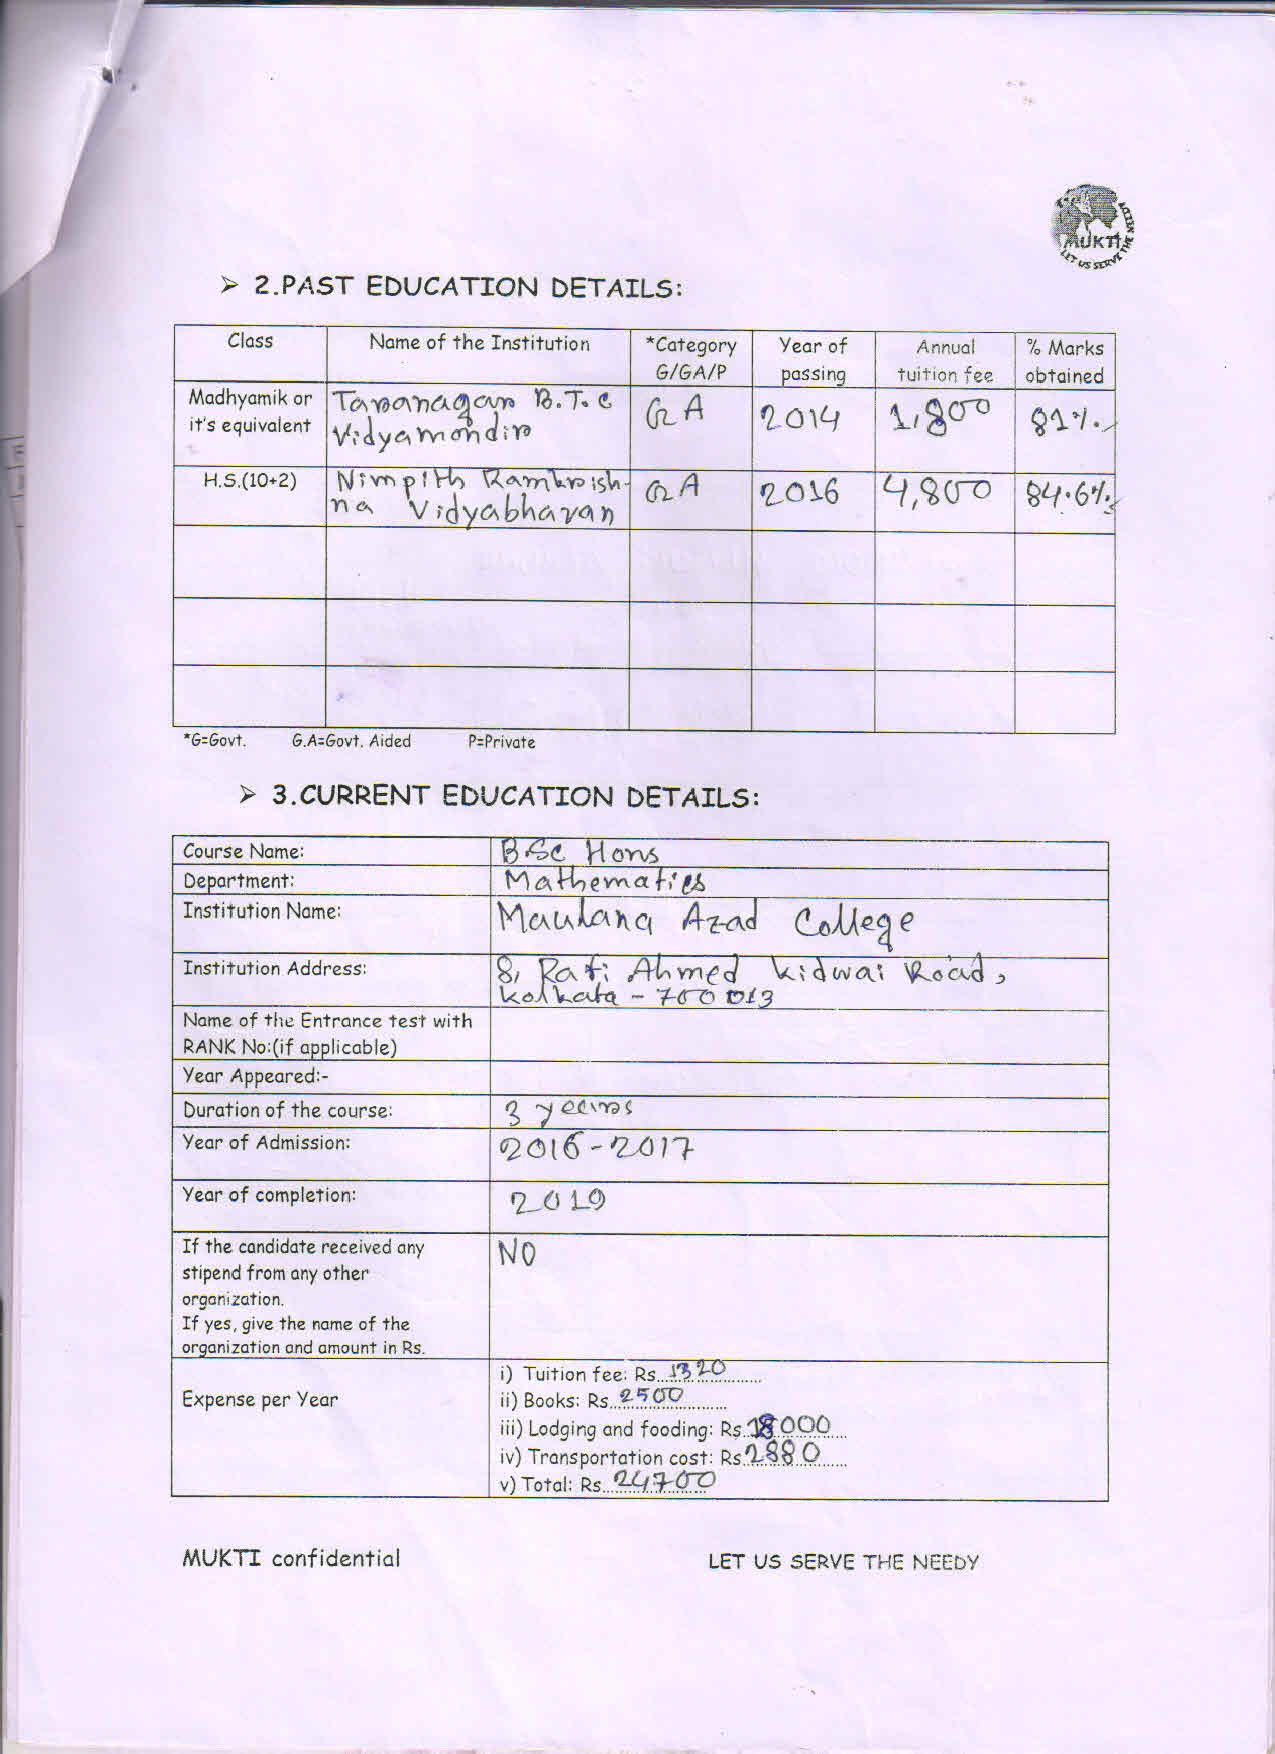 MUKTI
LET US SERVE THE NEEDY
➢ 2.PAST EDUCATION DETAILS:
Class Name of the Institution *Category G/GA/P Year of passing Annual tuition fee % Marks obtained
Madhyamik or it's equivalent Taranagar B.T.C Vidyamondir GA 2014 1,800 81%.
H.S.(10+2) Nimpith Ramkrish-na Vidyabhavan GA 2016 4,800 84.6%
*G=Govt. G.A=Govt. Aided P=Private
➢ 3.CURRENT EDUCATION DETAILS:
Course Name: BSc Hons
Department: Mathematics
Institution Name: Maulana Azad College
Institution Address: 8, Rafi Ahmed Kidwai Road,
Kolkata - 700 013
Name of the Entrance test with
RANK No:(if applicable)
Year Appeared:-
Duration of the course: 3 years
Year of Admission: 2016-2017
Year of completion: 2019
If the candidate received any NO
stipend from any other
organization.
If yes, give the name of the
organization and amount in Rs.
Expense per Year
i) Tuition fee: Rs...1320...
ii) Books: Rs...2500...
iii) Lodging and fooding: Rs...18000...
iv) Transportation cost: Rs...2880...
v) Total: Rs...24700...
MUKTI confidential LET US SERVE THE NEEDY